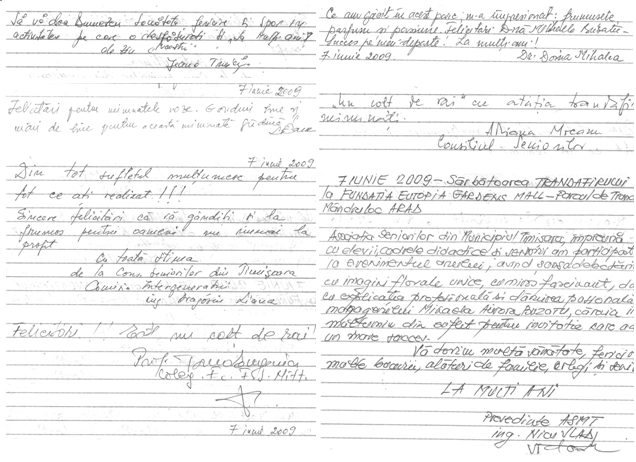 Să vă dea Dumnezeu Sănătate fericire și Spor în
activitatea pe care o desfășurați și "La mulți ani"
7 iunie 2009
Felicitări pentru minunatele roze. Gânduri bune și
urări de bine pentru această minunată grădină
7 iunie 2009
Din tot sufletul mulțumesc pentru
tot ce ați realizat!!!
Sincere felicitări că vă gândiți și la
frumos pentru oameni nu numai la
profit
Cu toată stima
de la Cons. Seniorilor din Timișoara
Comisia Intergenerații
ing. Dragomir Liana
Felicitări!! Este un colț de rai
Prof.
7 iunie 2009
Ce am găsit în acest parc, m-a impresionat: frumusețe
parfum și pasiune. Felicitări D-na Mihaela
Succes pe mai departe! La mulți ani!
7 iunie 2009. Dr. Doina Mihalca
"Un colț de rai" cu atâția trandafiri
minunați.
Consiliul Seniorilor
7 IUNIE 2009 - SĂRBĂTOAREA TRANDAFIRULUI
la FUNDAȚIA EUTOPIA GARDENS MALL - Parcul de
Mândruloc ARAD
Asociația Seniorilor din Municipiul Timișoara, împreună
cu elevii, cadrele didactice și seniorii am participat
la evenimentul anului, având șansa delectării
cu imagini florale unice, cu miros fascinant,
cu explicația profesională și dăruirea pasională a
managerului Mihaela Aurora căruia îi
mulțumim din suflet pentru invitație
un mare succes.
Vă dorim multă sănătate, fericire
multe bucurii, alături de familie, colegi și
LA MULȚI ANI
Președinte ASMT
ing. Nicu VLAD